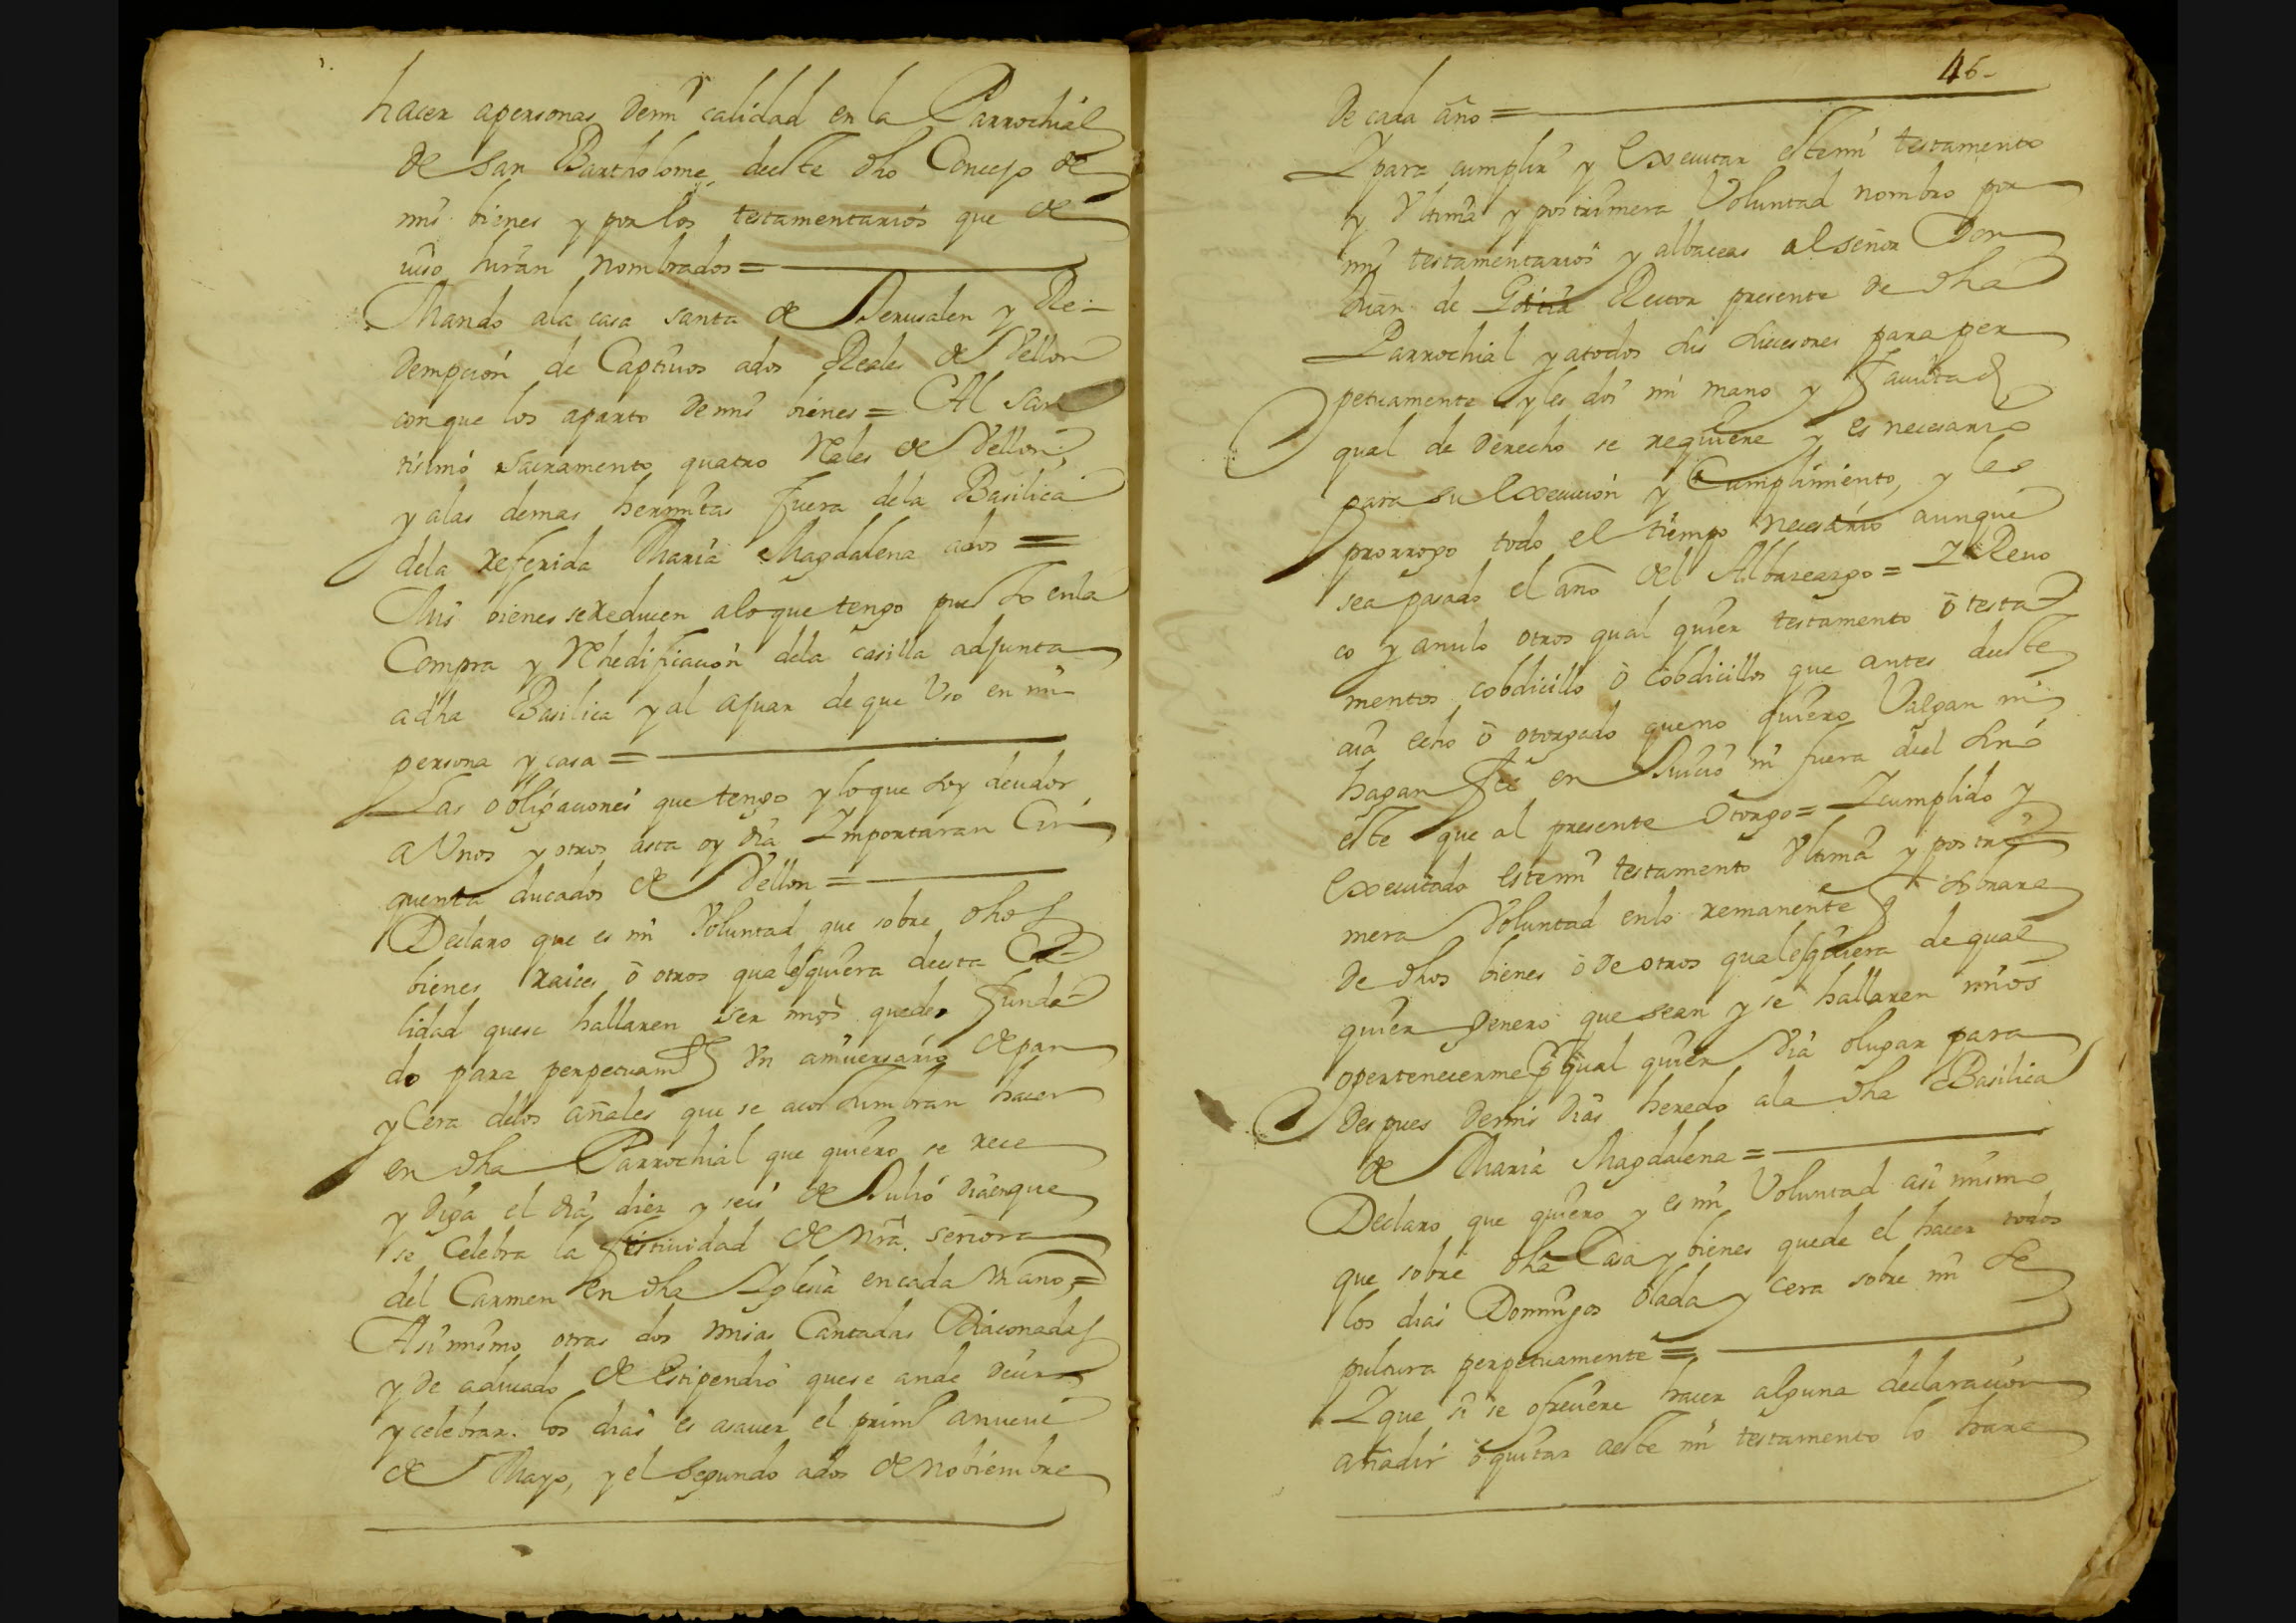 hacer apersonas demi calidad en la Parrochial
de San Bartholome, deeste dho Concejo de
mis bienes y por los testamentarios que de
uso hiran nombrados =
Mando ala casa santa de Jerusalen y Re=
dempción de Captivos ados Reales de Vellon
con que los aparto de mis bienes = Al San
tisimo Sacramento quatro Rales de Vellon,
y alas demas hermitas fuera dela Basilica
dela referida Maria Magdalena ados =
Mis bienes sereducen aloque tengo puesto enla
Compra y Rehedificación dela casilla adjunta
adha Basilica y al ajuar de que Uso en mi
persona y casa =
Las obligaciones que tengo y lo que soy deudor
a Unos y otros asta oy dia Importaran Cin
quenta ducados de Vellon =
Declaro que es mi Voluntad que sobre dhos
bienes raices ò otros qualesquiera deesta Ca=
lidad quese hallaren ser mios quede funda=
do para perpetuam.te Un aniversario de pan
y Cera delos añales que se acostumbran hacer
en dha Parrochial que quiero se rece
y diga el dia diez y seis de Julio dia enque
se Celebra la festividad de Nra. señora
del Carmen en dha Iglesia encada Un ano, =
Asimismo otras dos misas Cantadas Diaconadas
y de aducado de estipendio quese ande decir
y celebrar. los dias es asaver el prim.o anueve
de Mayo, y el segundo ados de Nobiembre
46-
De cada año =
Y para cumplir y Executar este mi testamento
y Ultima y postrimera Voluntad nombro por
mis testamentarios y albaceas al señor Don
Juan de Rector presente de dha
Parrochial y atodos sus sucesores para per
petuamente y les doi mi mano y facultad
qual de Derecho se requiere y es necesario
para su Execución y Cumplimiento, y les
prorrogo todo el tiempo necesario aunque
sea pasado el año del Albaceazgo = Y Revo
co y anulo otros qual quier testamento ò testa=
mentos cobdicillo ò Cobdicillos que antes deeste
aia echo ò otorgado que no quiero Valgan ni
hagan fee en Juicio ni fuera deel sino
este que al presente Otorgo = Y cumplido y
Executado este mi testamento Ultima y postri
mera Voluntad enlo remanente q sobrare
de dhos bienes ò de otros qualesquiera de qual
quier genero que sean y se hallaren mios
opertenecerme qual quier dia olugar para
despues demis dias heredo ala dha Basilica
de Maria Magdalena =
Declaro que quiero y es mi Voluntad asi mismo
que sobre dha Casa y bienes quede el hacer todos
los dias Domingos oblada y cera sobre mi se
pultura perpetuamente =
Y que si se ofreciere hacer alguna declaración
añadir ò quitar aeste mi testamento lo hare